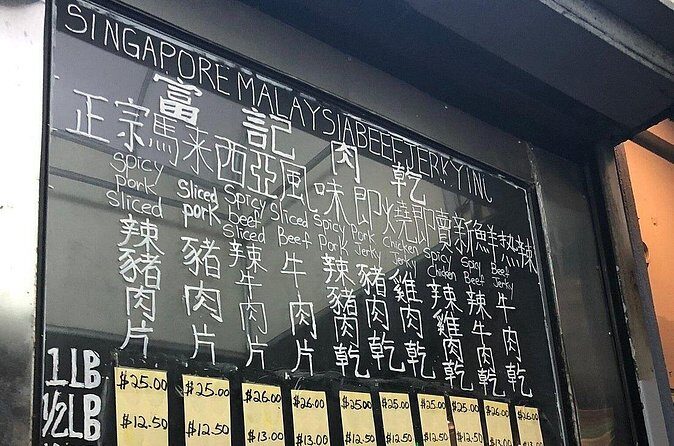 SINGAPORE MALAYSIA BEEF JERKY INC
富記肉乾
正宗馬来西亞風味即燒即賣新鮮热辣
Spicy Pork Sliced
辣豬肉片
Sliced pork
豬肉片
Spicy beef Sliced
辣牛肉片
Sliced Beef
牛肉片
Spicy Pork Jerky
辣豬肉乾
Pork Jerky
豬肉乾
Chicken Jerky
雞肉乾
Spicy Chicken
辣雞肉乾
Spicy Beef
辣牛肉乾
Beef Jerky
牛肉乾
1LB $25.00 $25.00 $26.00 $26.00 $25.00 $25.00 $25.00 $25.00 $26.00 $26.00
1/2LB $12.50 $12.50 $13.00 $13.00 $12.50